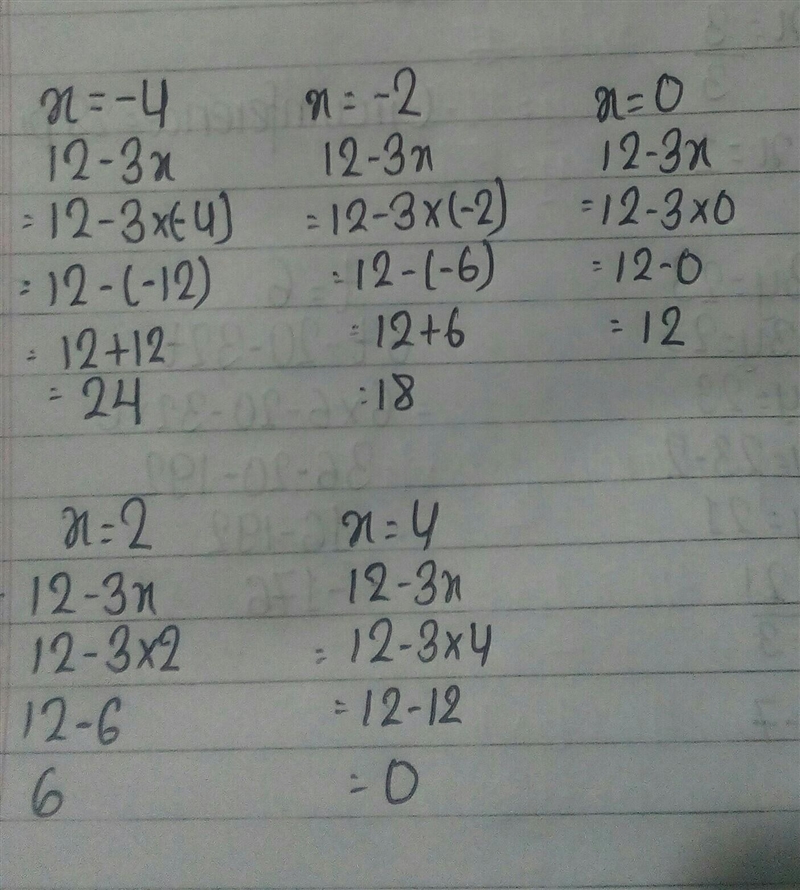 x=-4
12-3x
=12-3x(-4)
=12-(-12)
=12+12
=24
x=-2
12-3x
=12-3x(-2)
=12-(-6)
=12+6
=18
x=0
12-3x
=12-3x0
=12-0
=12
x=2
12-3x
12-3x2
12-6
6
x=4
12-3x
=12-3x4
=12-12
=0